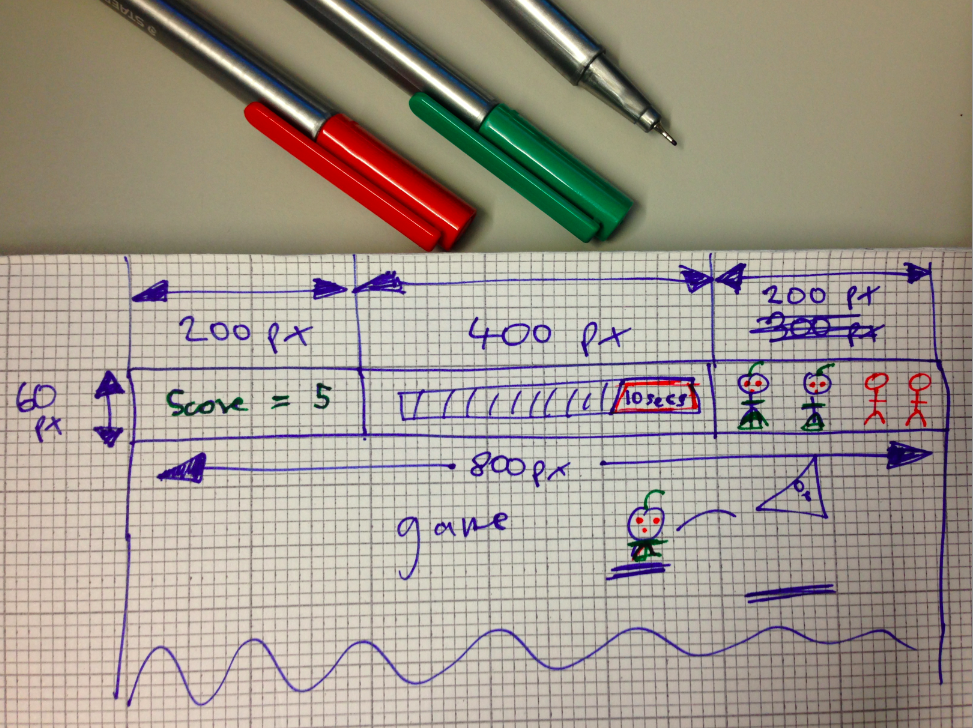 STAED
200 px
400 px
200 px
300 px
60
px
Score = 5
10secs
800px
game